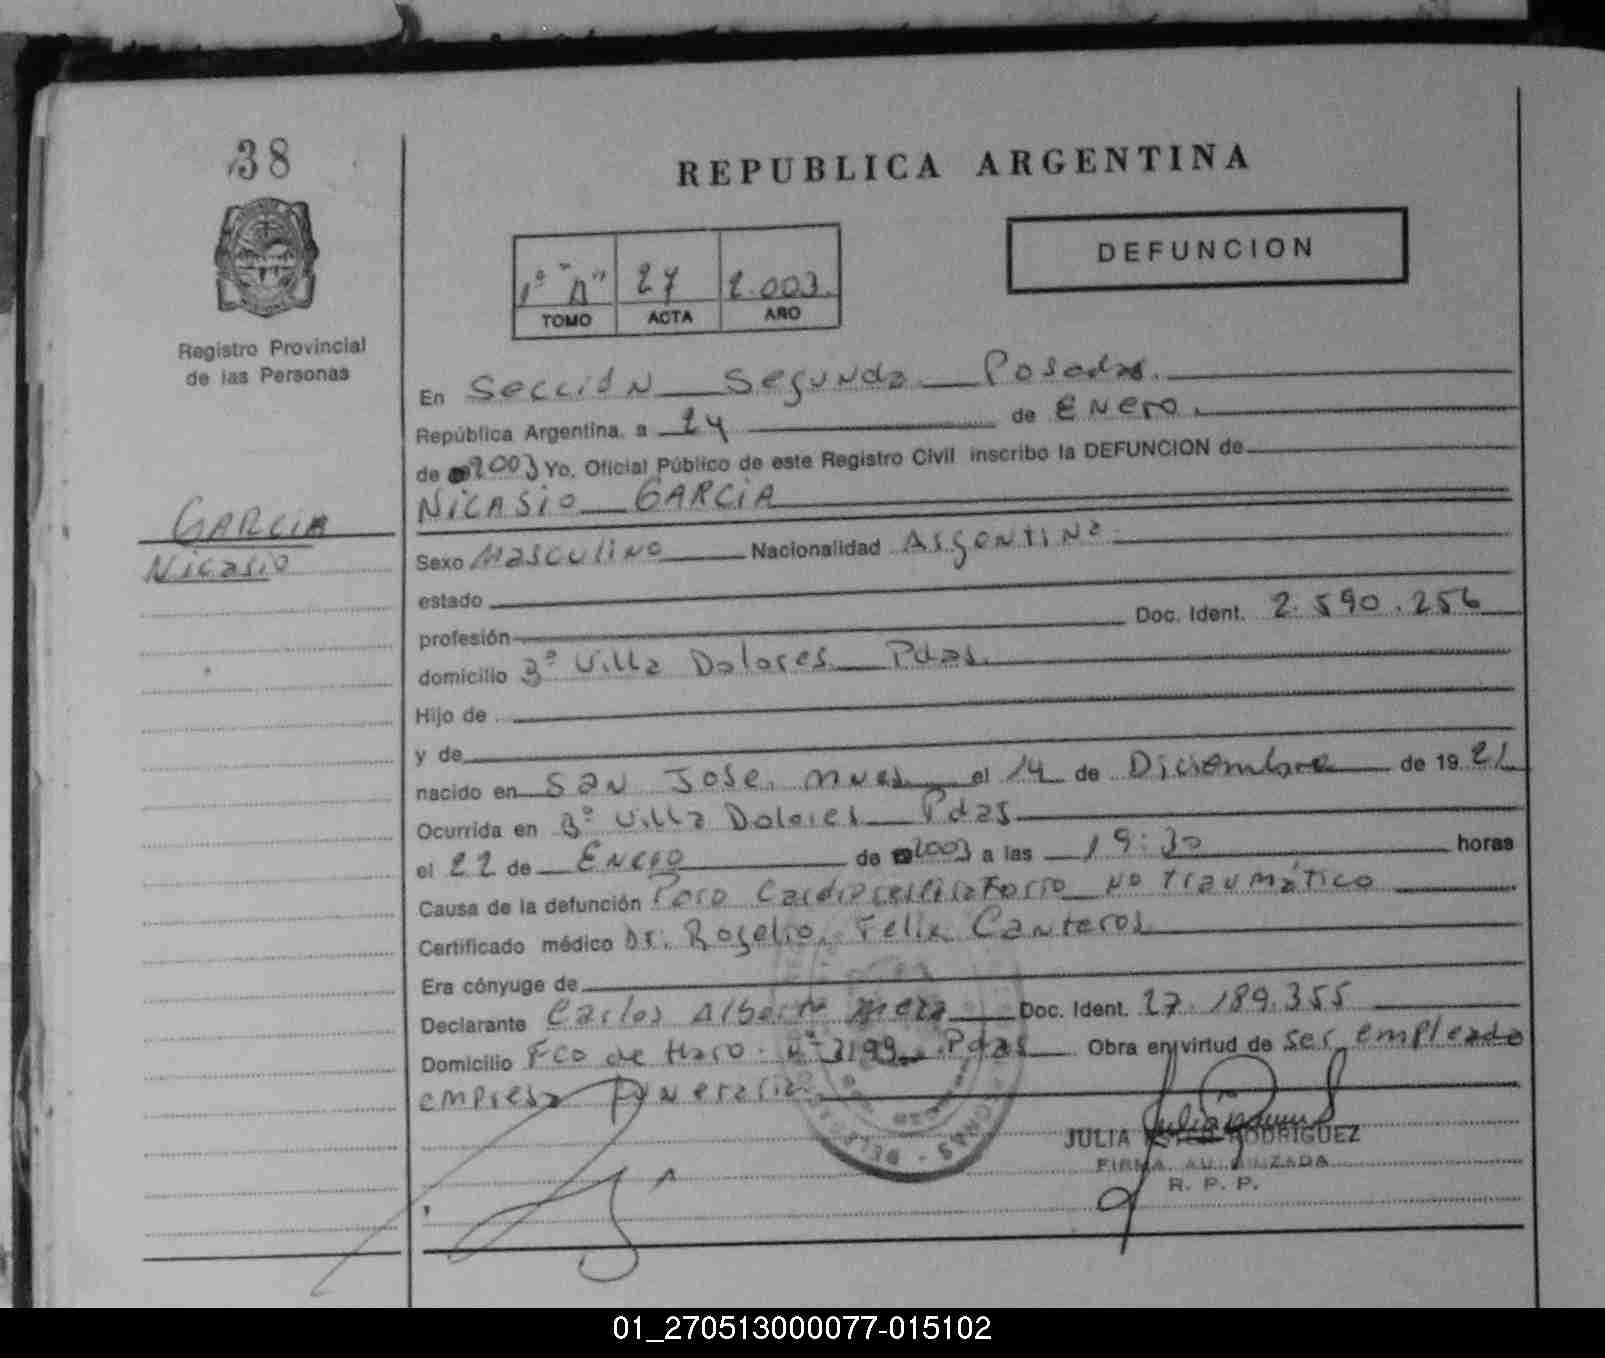 38
REPUBLICA ARGENTINA
DEFUNCION
1º "A" 27 2.003.
TOMO ACTA AÑO
Registro Provincial
de las Personas
En Sección Segunda Posadas.
República Argentina, a 24 de Enero.
de 2003 Yo, Oficial Público de este Registro Civil inscribo la DEFUNCION de
NICASIO GARCIA
GARCIA
Nicasio
Sexo Masculino Nacionalidad Argentina
estado
profesión Doc. Ident. 2.590.256
domicilio Bº Villa Dolores Pdas.
Hijo de
y de
nacido en San Jose. Mnes el 14 de Diciembre de 1921
Ocurrida en Bº Villa Dolores Pdas
el 22 de Enero de 2003 a las 19:30 horas
Causa de la defunción Paro Cardiorespiratorio no traumático
Certificado médico Dr. Rogelio Felix Canteros
Era cónyuge de
Declarante Carlos Alberto Doc. Ident. 27.189.355
Domicilio Fco de Haro. Nº 3199 Pdas Obra en virtud de ser empleado
empresa Funeraria
JULIA ESTER RODRIGUEZ
FIRMA AUTORIZADA
R. P. P.
01_270513000077-015102